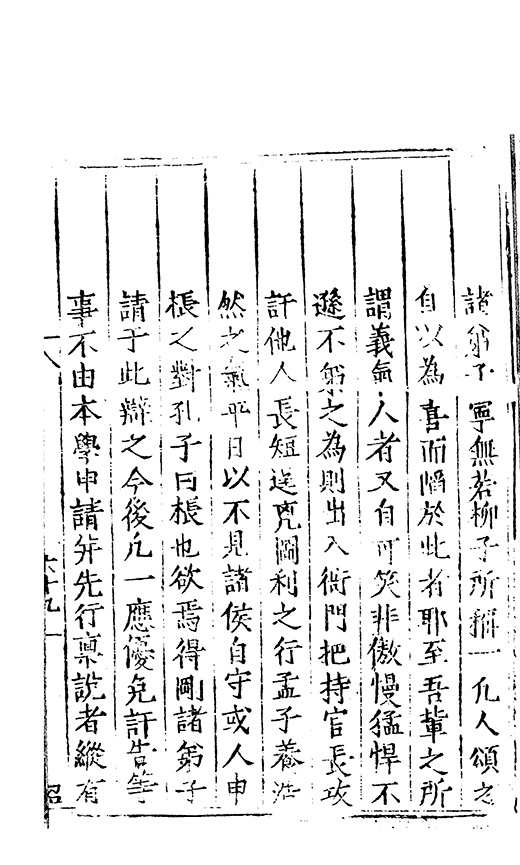 諸弟子寧無若柳子所稱一凡人頌之
自以為喜而陷於此者耶至吾輩之所
謂義氣人者又自可笑非傲慢猛悍不
遜不弟之為則出入衙門把持官長攻
訐他人長短逞兇圖利之行孟子養浩
然之氣平日以不見諸侯自守或人申
棖之對孔子曰棖也欲焉得剛諸弟子
請于此辯之今後凢一應優免訐告等
事不由本學申請并先行稟説者縱有
八 六十九